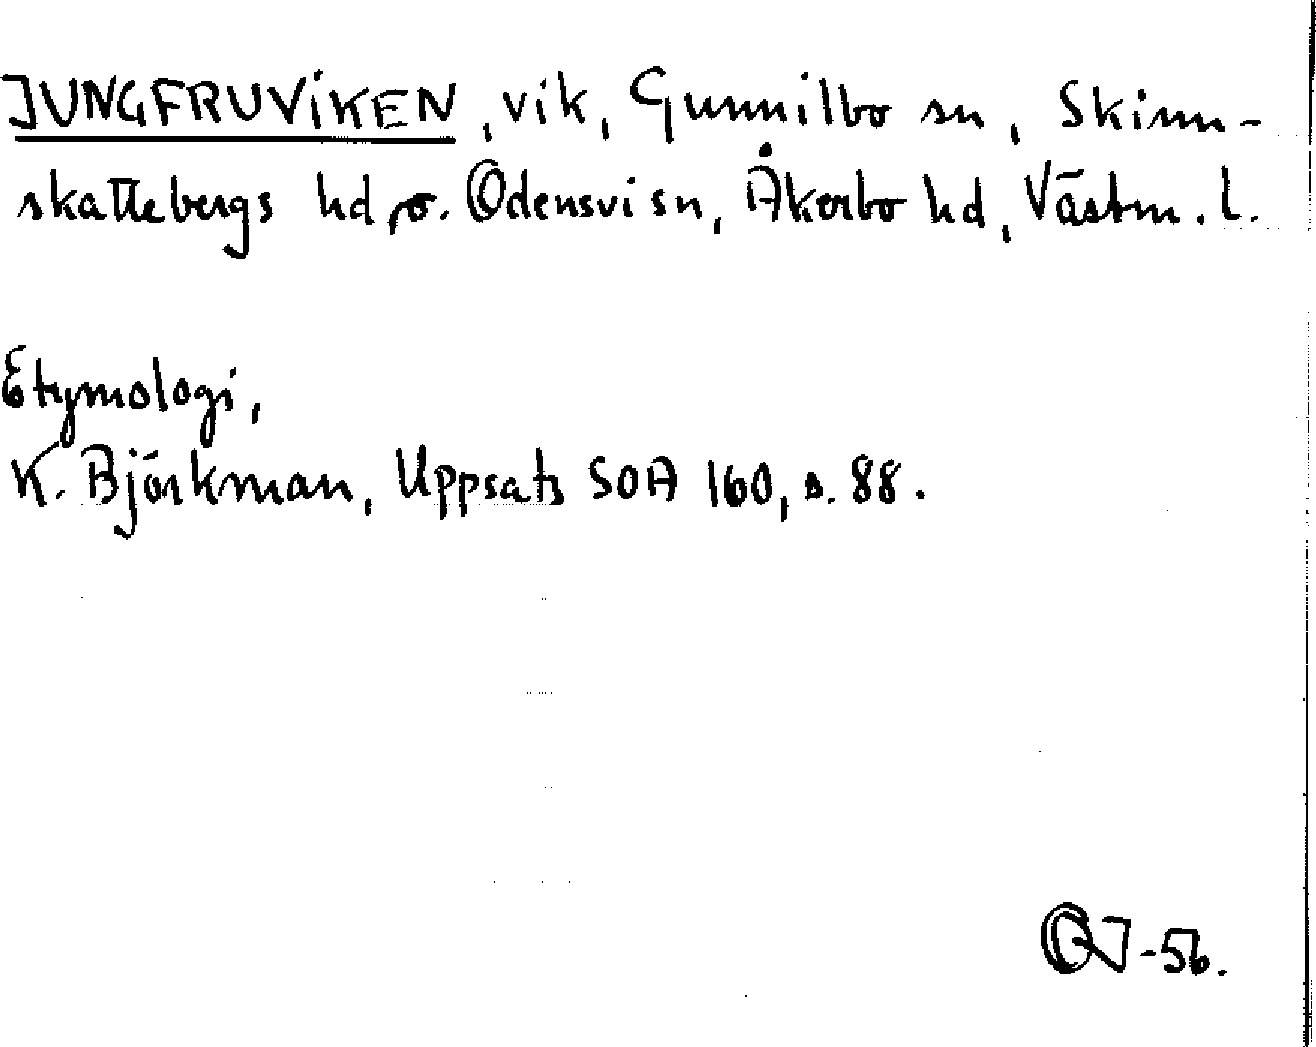 JUNGFRUVIKEN, vik, Gunnilbo sn, Skinn-
skattebergs hd, o. Odensvi sn, Åkerbo hd, Västm. l.
Etymologi,
K. Björkman, Uppsats SOA 160, s. 88.
-56.